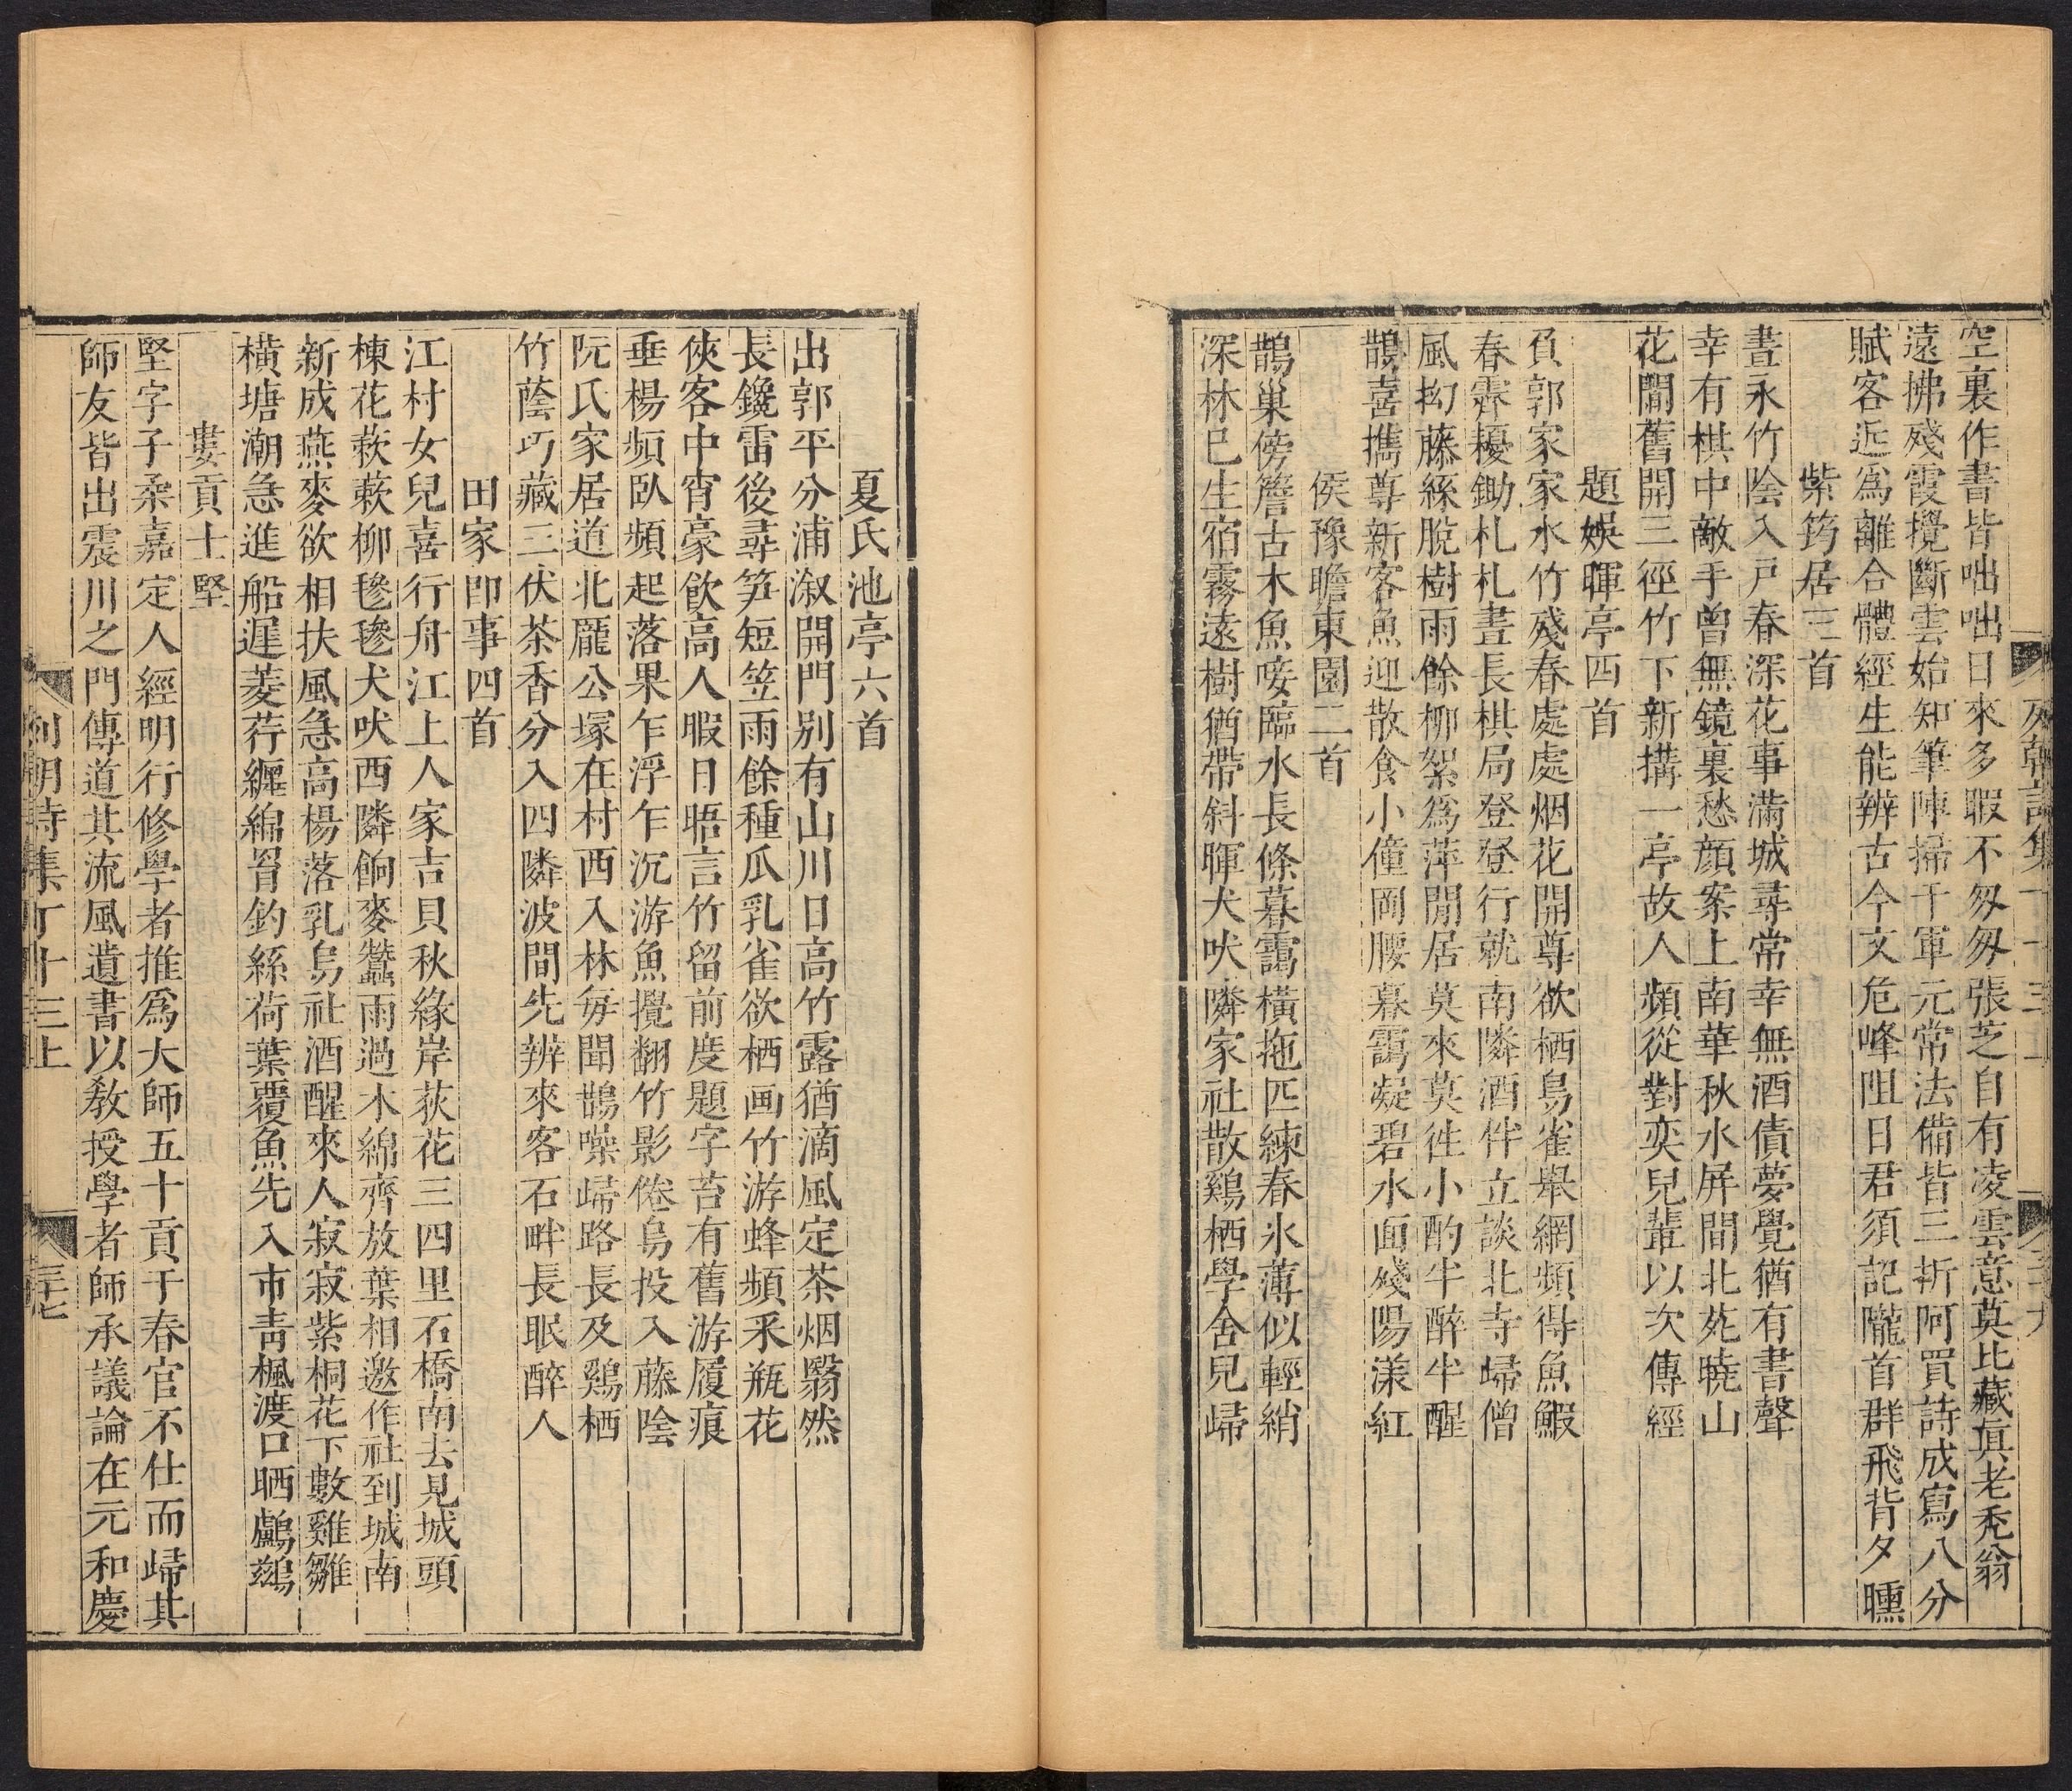 空裏作書皆咄咄日來多暇不匆匆張芝自有凌雲意莫比藏眞老禿翁
遠拂殘霞攪斷雲始知筆陣掃千軍元常法備皆三折阿買詩成寫八分
賦客近爲離合體經生能辨古今文危峰阻日君須記隴首群飛背夕曛
紫筠居三首
晝永竹陰入戸春深花事滿城尋常幸無酒債夢覺猶有書聲
幸有棋中敵手曾無鏡裏愁顔案上南華秋水屏間北苑曉山
花間舊開三徑竹下新搆一亭故人頻從對奕兒輩以次傳經
題娛暉亭四首
負郭家家水竹殘春處處烟花開尊欲栖鳥雀舉網頻得魚鰕
春霽耰鋤札札晝長棋局登登行就南隣酒伴立談北寺歸僧
風抝藤絲脫樹雨餘柳絮爲萍閒居莫來莫徃小酌半醉半醒
鵲喜攜尊新客魚迎散食小僮岡腰暮靄凝碧水面殘陽漾紅
侯豫瞻東園二首
鵲巢傍簷古木魚唼臨水長條暮靄橫拖匹練春氷薄似輕綃
深林已生宿霧遠樹猶帶斜暉犬吠隣家社散鷄栖學舍兒歸
夏氏池亭六首
出郭平分浦溆開門別有山川日高竹露猶滴風定茶烟翳然
長鑱雷後尋笋短笠雨餘種瓜乳雀欲栖画竹游蜂頻釆瓶花
俠客中宵豪飮高人暇日晤言竹留前度題字苔有舊游履痕
垂楊頻臥頻起落果乍浮乍沉游魚攪翻竹影倦鳥投入藤陰
阮氏家居道北龐公塚在村西入林每聞鵲噪歸路長及鷄栖
竹蔭巧藏三伏茶香分入四隣波間先辨來客石畔長眠醉人
田家即事四首
江村女兒喜行舟江上人家吉貝秋緣岸荻花三四里石橋南去見城頭
楝花蔌蔌柳毿毿犬吠西隣餉麥蠶雨過木綿齊放葉相邀作社到城南
新成燕麥欲相扶風急高楊落乳烏社酒醒來人寂寂紫桐花下數雞雛
橫塘潮急進船遲菱荇纏綿罥釣絲荷葉覆魚先入市靑楓渡口晒鸕鷀
婁貢士堅
堅字子柔嘉定人經明行修學者推爲大師五十貢于春官不仕而歸其
師友皆出震川之門傳道其流風遺書以敎授學者師承議論在元和慶
列朝詩集丁十三上
三七